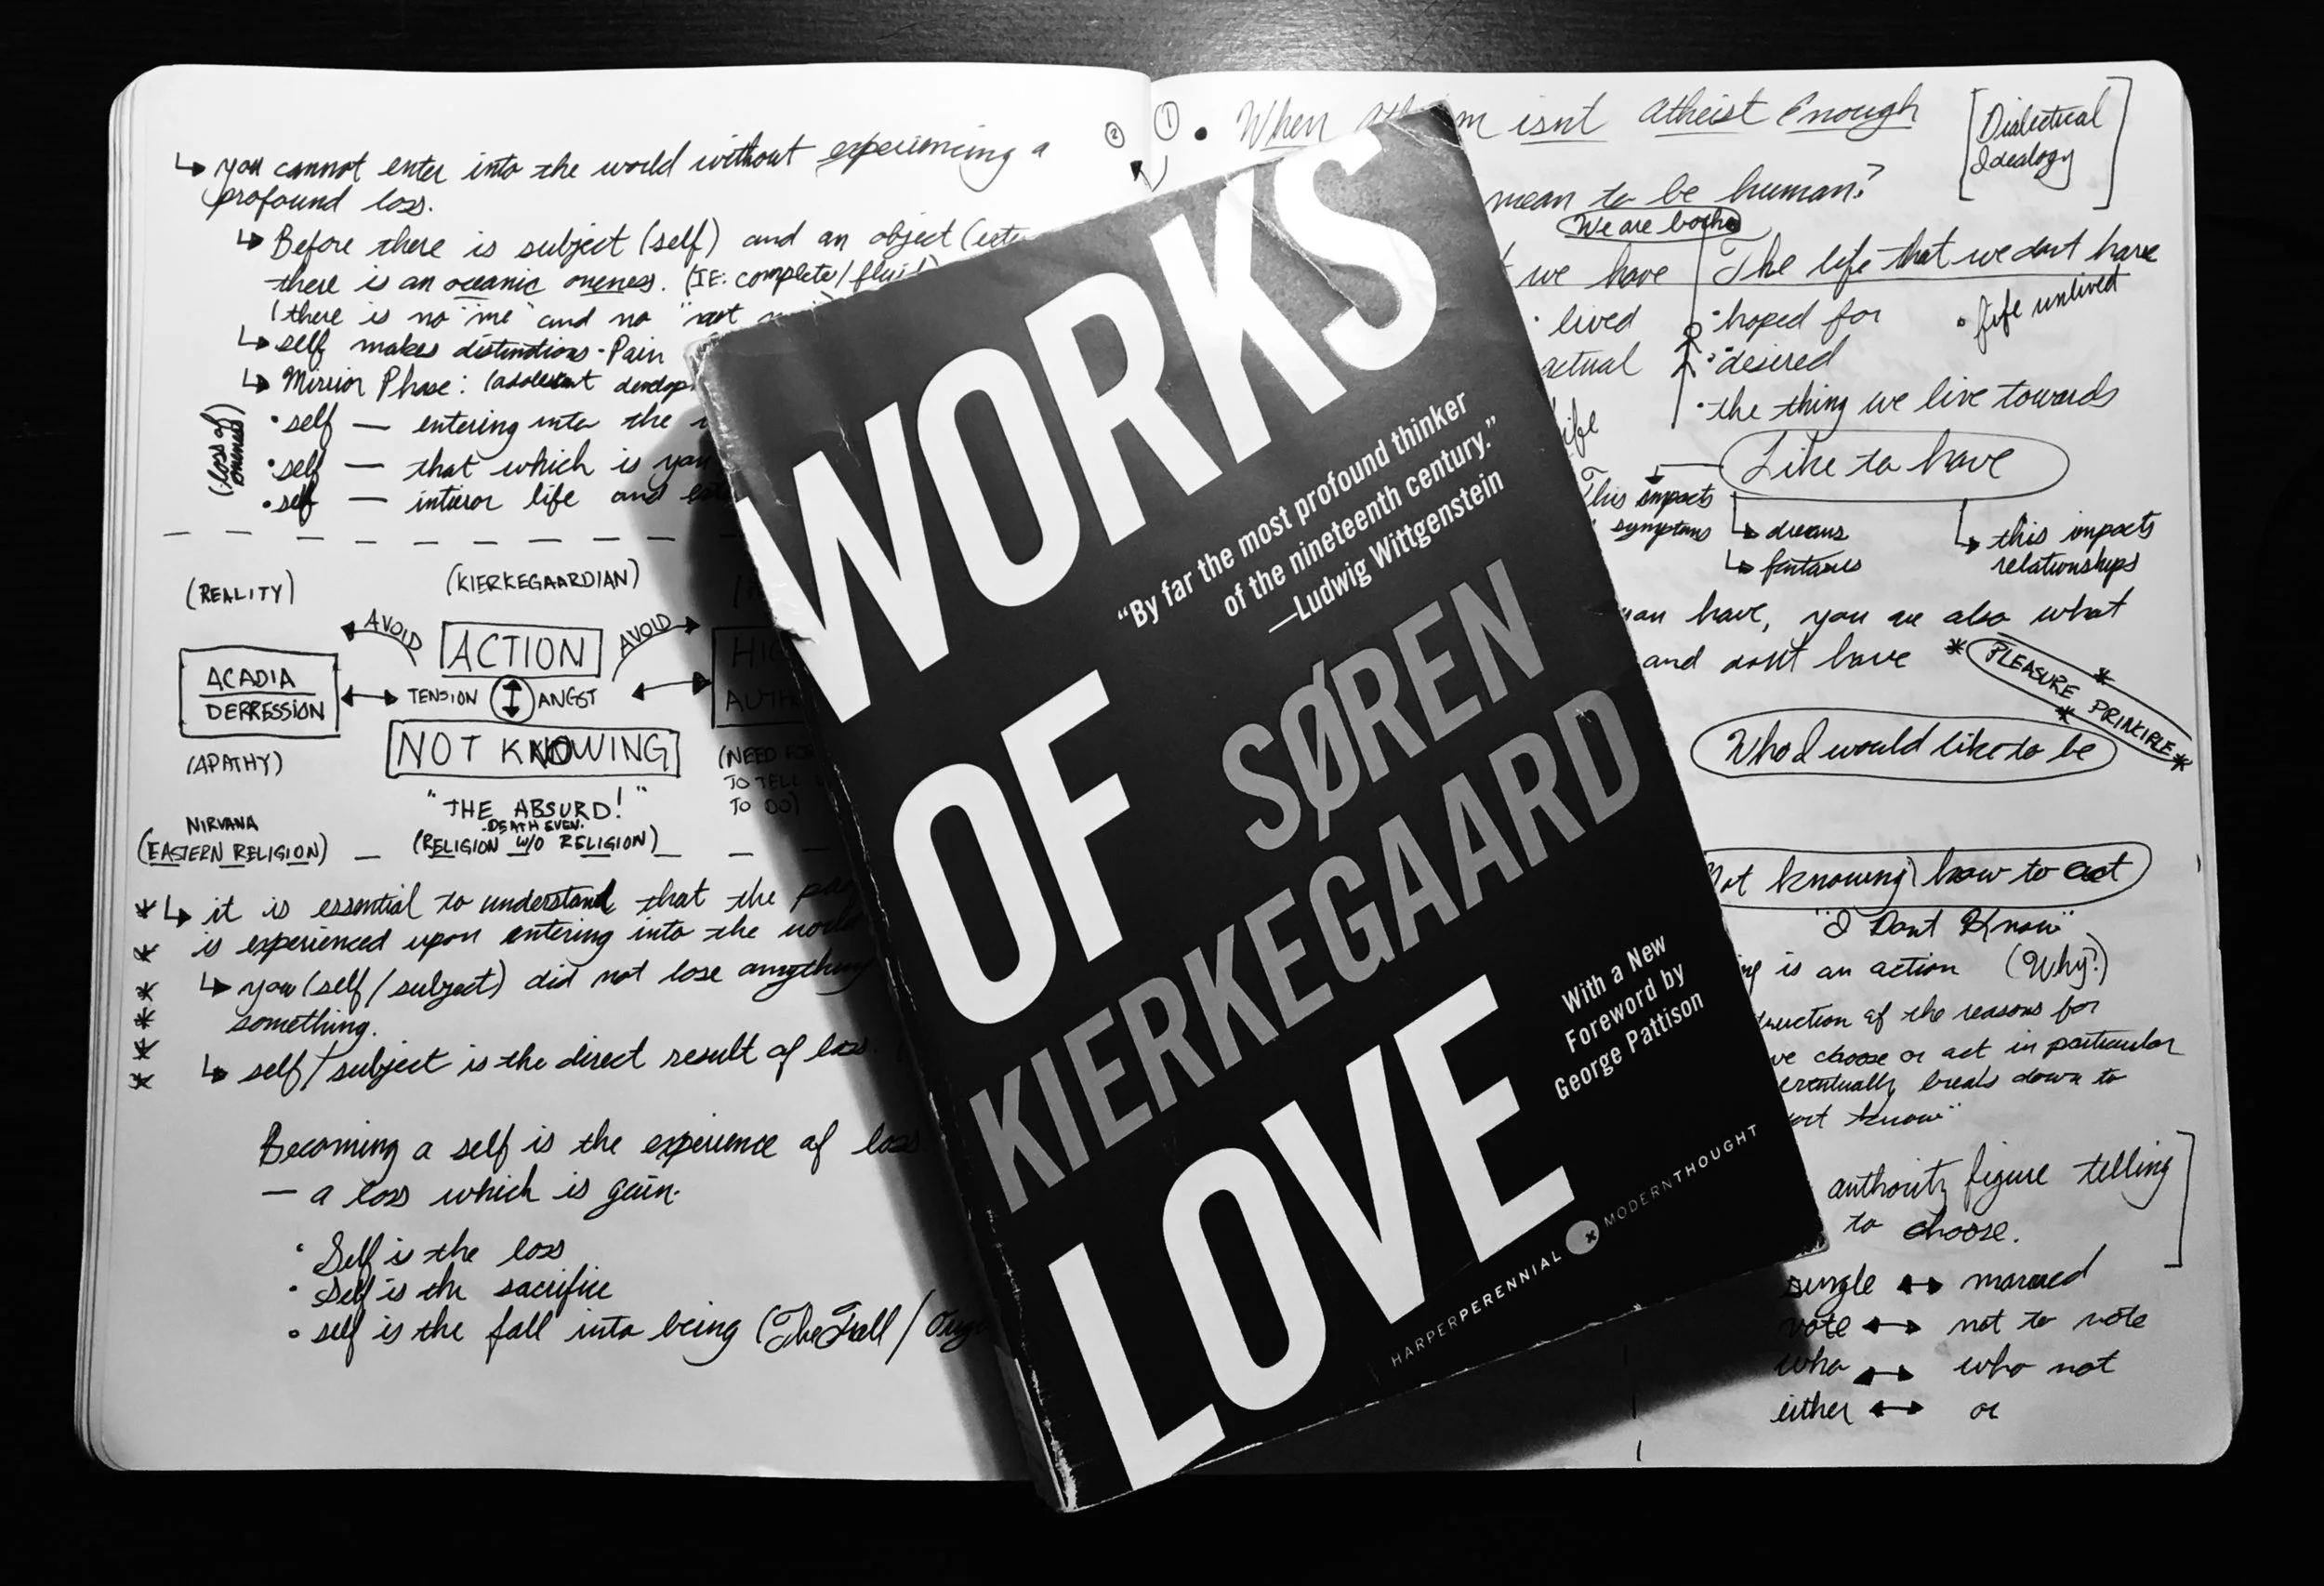 ↳ you cannot enter into the world without experiencing a
profound loss.
↳ Before there is subject (self) and an object
there is an oceanic oneness. (IE: complete/
(there is no "me" and no "not
↳ self makes distinctions - Pain
↳ Mirror Phase:
(loss of
oneness)
• self — entering into the
• self — that which is you
• self — interior life and
(REALITY)
(KIERKEGAARDIAN)
AVOID
ACTION
AVOID
ACADIA
DEPRESSION
TENSION
ANGST
NOT KNOWING
(APATHY)
(NEED FOR
TO TELL
TO DO)
"THE ABSURD!"
DEATH EVEN.
NIRVANA
(EASTERN RELIGION)
(RELIGION W/O RELIGION)
* ↳ it is essential to understand that the
* is experienced upon entering into the world
* ↳ you (self/subject) did not lose anything
* something.
* ↳ self/subject is the direct result of loss.
*
Becoming a self is the experience of loss
— a loss which is gain.
• Self is the loss
• Self is the sacrifice
• self is the fall into being (The Fall /
② ① • When isnt Atheist Enough
[Dialectical
Idealogy]
mean to be human?
We are both
we have
The life that we dont have
• lived
• hoped for
• life unlived
actual
• desired
• the thing we live towards
Like to have
This impacts
symptoms
↳ dreams
↳ fantasies
↳ this impacts
relationships
have, you are also what
and dont have
* PLEASURE PRINCIPLE *
Who I would like to be
Not knowing how to act
"I Dont Know"
is an action (Why?)
of the reasons for
we choose or act in particular
eventually breaks down to
know"
authority figure telling
to choose.
single ↔ married
vote ↔ not to vote
who ↔ who not
either ↔ or
WORKS
"By far the most profound thinker
of the nineteenth century."
—Ludwig Wittgenstein
OF
SØREN
KIERKEGAARD
LOVE
With a New
Foreword by
George Pattison
HARPERPERENNIAL MODERNTHOUGHT